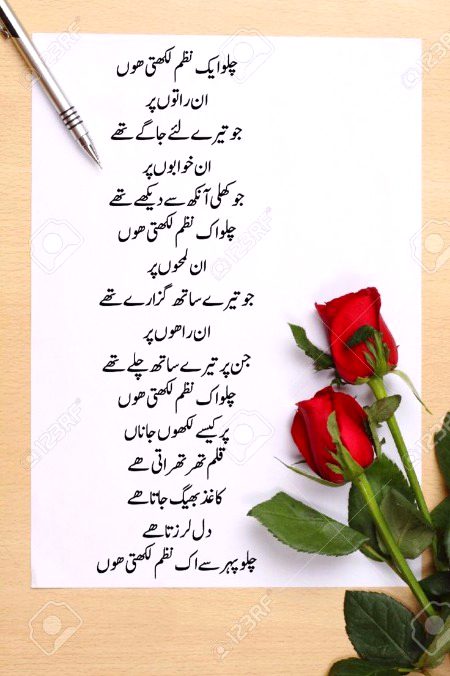 چلو ایک نظم لکھتی ھوں
ان راتوں پر
جو تیرے لئے جاگے تھے
ان خوابوں پر
جو کھلی آنکھ سے دیکھے تھے
چلو اک نظم لکھتی ھوں
ان لمحوں پر
جو تیرے ساتھ گزارے تھے
ان راھوں پر
جن پر تیرے ساتھ چلے تھے
چلو اک نظم لکھتی ھوں
پر کیسے لکھوں جاناں
قلم تھر تھراتی ھے
کاغذ بھیگ جاتا ھے
دل لرزتا ھے
چلو پہر سے اک نظم لکھتی ھوں
123RF